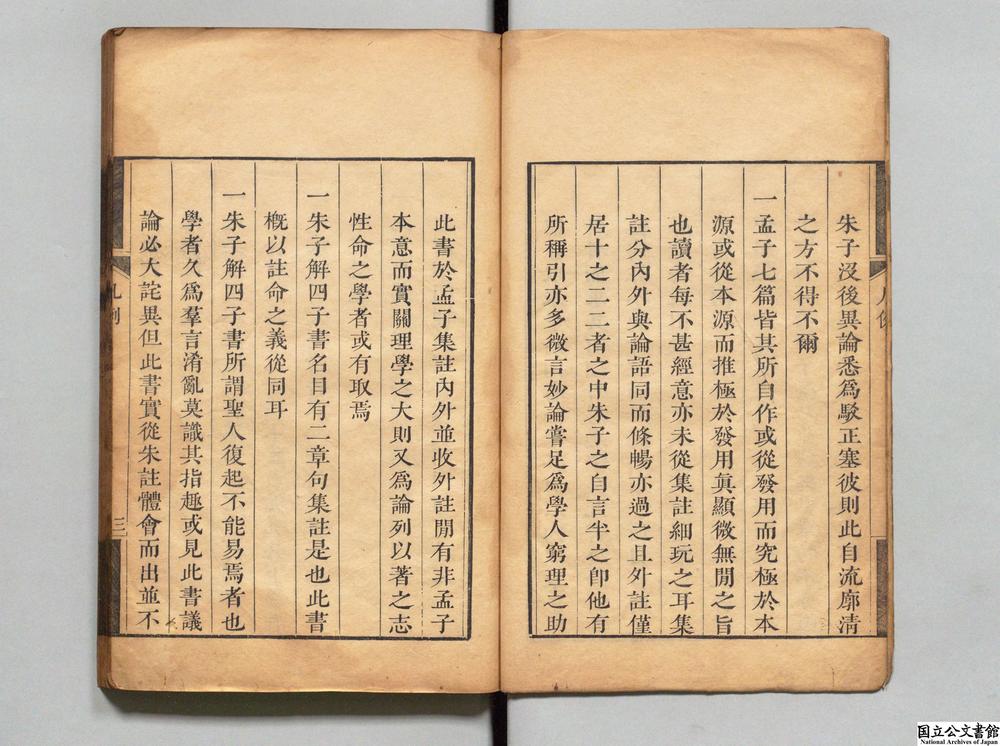 朱子沒後異論悉爲駁正塞彼則此自流廓淸
之方不得不爾
一孟子七篇皆其所自作或從發用而究極於本
源或從本源而推極於發用眞顯微無閒之旨
也讀者每不甚經意亦未從集註細玩之耳集
註分內外與論語同而條暢亦過之且外註僅
居十之二二者之中朱子之自言半之卽他有
所稱引亦多微言妙論嘗足爲學人窮理之助
此書於孟子集註內外並收外註閒有非孟子
本意而實關理學之大則又爲論列以著之志
性命之學者或有取焉
一朱子解四子書名目有二章句集註是也此書
槪以註命之義從同耳
一朱子解四子書所謂聖人復起不能易焉者也
學者久爲羣言淆亂莫識其指趣或見此書議
論必大詫異但此書實從朱註體會而出並不
凡例
三
国立公文書館
National Archives of Japan